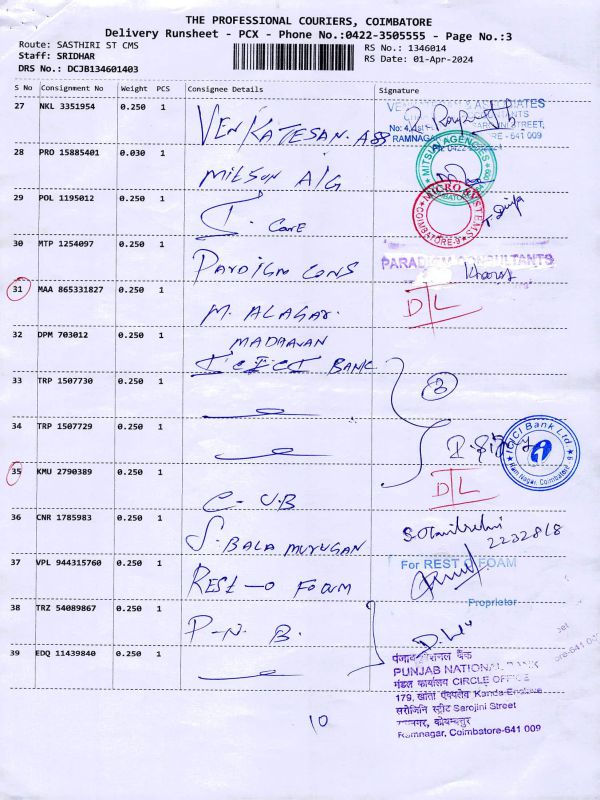 THE PROFESSIONAL COURIERS, COIMBATORE
Delivery Runsheet - PCX - Phone No.:0422-3505555 - Page No.:3
Route: SASTHIRI ST CMS
RS No.: 1346014
Staff: SRIDHAR
RS Date: 01-Apr-2024
DRS No.: DCJB134601403
S No Consignment No Weight PCS Consignee Details Signature
27 NKL 3351954 0.250 1 VENKATESAN. ASS
No: 4,
RAMNAGAR, RE - 641 009
28 PRO 15885401 0.030 1 MILSON A/G
MITSUN AGENCIES
29 POL 1195012 0.250 1 I. CARE
MICRO SYSTEMS
COIMBATORE-9
30 MTP 1254097 0.250 1 PARDIGM CONS
PARADIGM CONSULTANTS
31 MAA 865331827 0.250 1 M. ALAGAR.
MADAAVAN
D/L
32 DPM 703012 0.250 1 ICICI BANK
33 TRP 1507730 0.250 1
3
34 TRP 1507729 0.250 1
ICICI Bank Ltd.
Ram Nagar, Coimbatore
35 KMU 2790389 0.250 1 C-UB
D/L
36 CNR 1785983 0.250 1 S. BALA MURUGAN
2232818
37 VPL 944315760 0.250 1 REST-O FOAM
For REST O FOAM
Proprietor
38 TRZ 54089867 0.250 1 P-N. B.
39 EDQ 11439840 0.250 1
पंजाब नैशनल बैंक
PUNJAB NATIONAL BANK
मंडल कार्यालय CIRCLE OFFICE
179, Kanda Enclave
सरोजिनि स्ट्रीट Sarojini Street
रामनगर, कोयम्बत्तूर
Ramnagar, Coimbatore-641 009
10